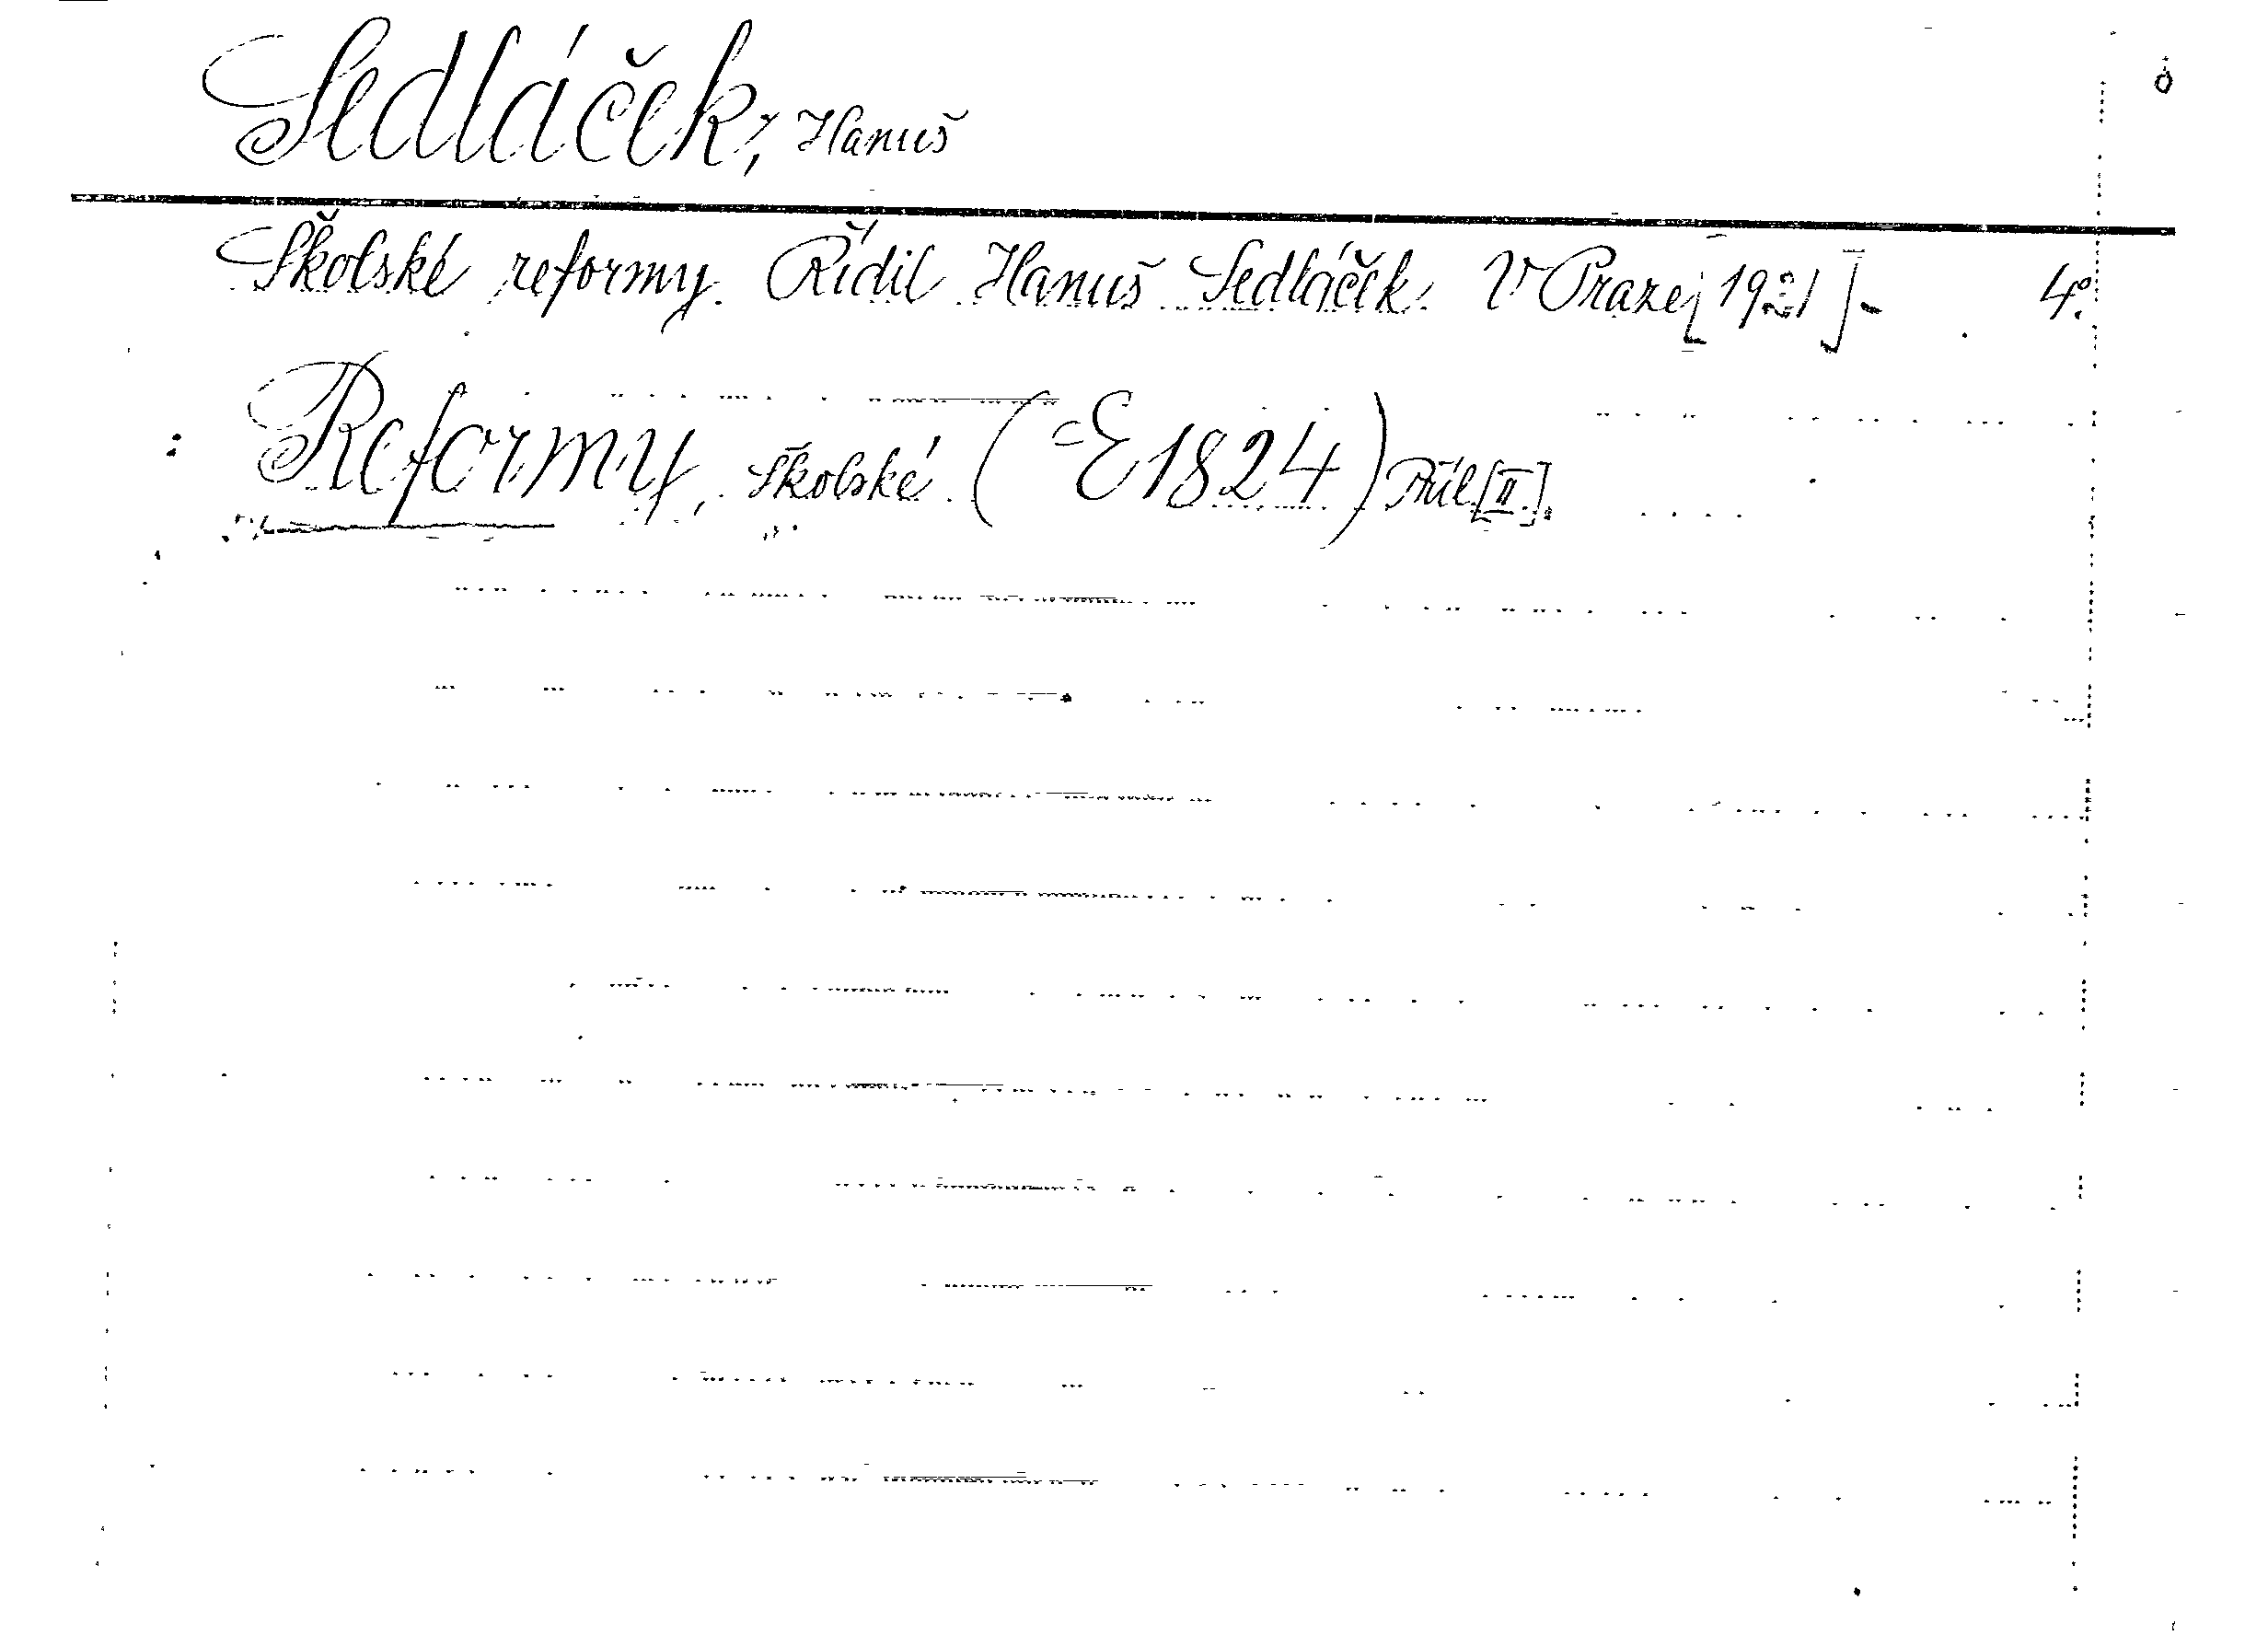 Sedláček, Hanuš
Školské reformy. Řídil Hanuš Sedláček. V Praze [1921]- 4°.
Reformy, školské (=E1824) Příl [II].